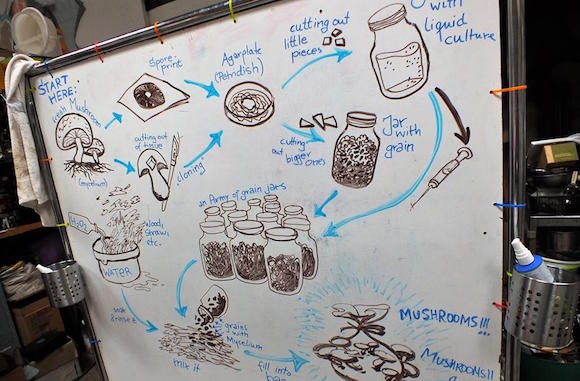 START
HERE:
Fresh Mushroom
(mycelium)
spore
print
cutting out
of tissue
"cloning"
Agarplate
(Petridish)
cutting out
little
pieces
with
liquid
culture
cutting
out
bigger
ones
Jar
with
grain
an Army of grain jars
H2O2
WATER
Wood,
Straw,
etc.
mix it
grains
with
Mycelium
fill into
MUSHROOMS!!!
MUSHROOMS!!